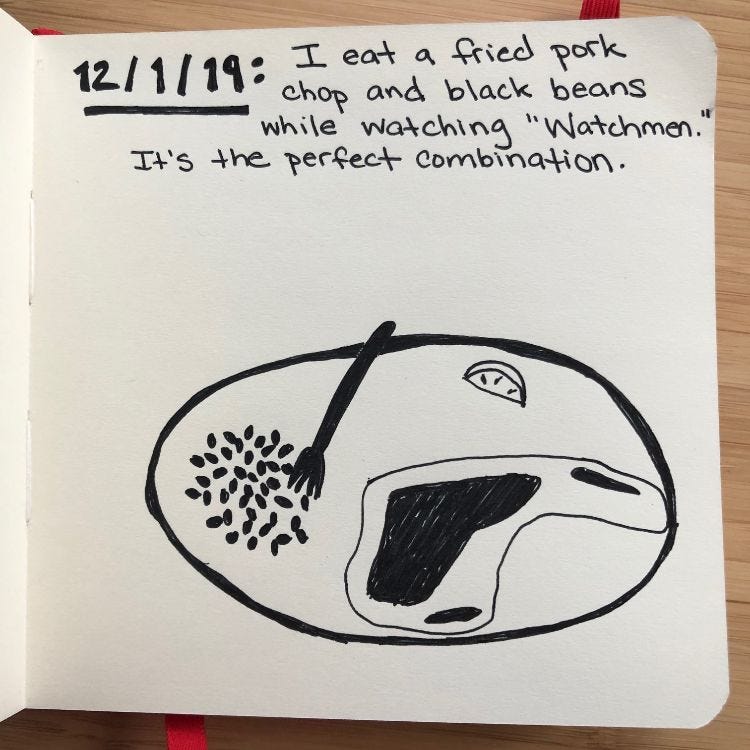 12/1/19: I eat a fried pork
chop and black beans
while watching "Watchmen."
It's the perfect combination.